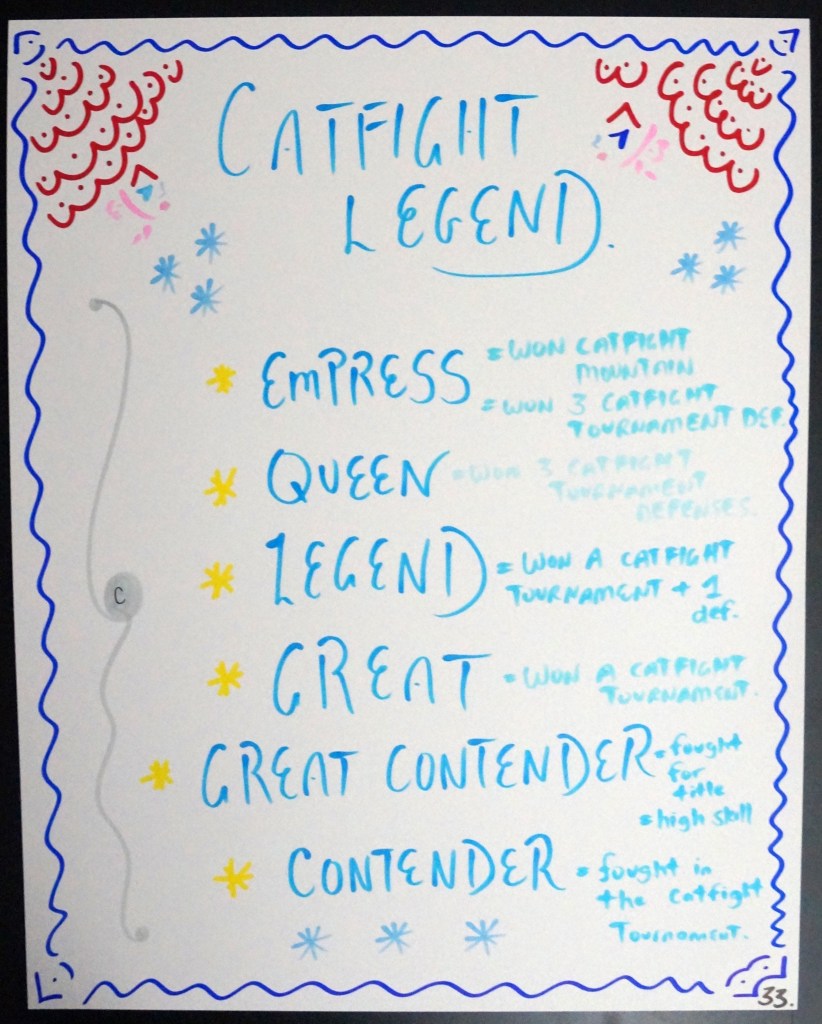 CATFIGHT
LEGEND.
EMPRESS = WON CATFIGHT
MOUNTAIN
= WON 3 CATFIGHT
TOURNAMENT DEF.
QUEEN = WON 3 CATFIGHT
TOURNAMENT
DEFENSES.
LEGEND = WON A CATFIGHT
TOURNAMENT + 1
def.
GREAT = WON A CATFIGHT
TOURNAMENT.
C
GREAT CONTENDER = fought
for
title
= high skill
CONTENDER = fought in
the Catfight
Tournament.
33.